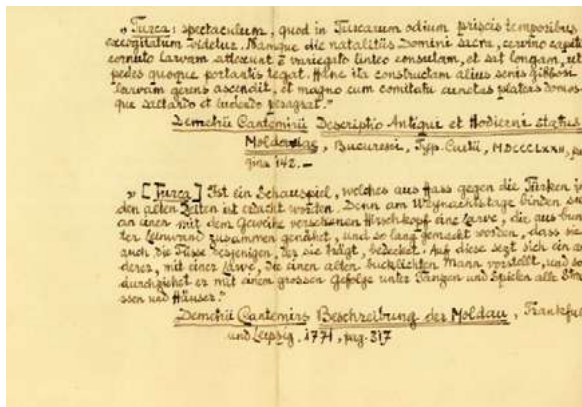 „Turca: spectaculum, quod in Turcarum odium priscis temporibus
excogitatum videtur. Namque die natalitiis Domini sacra, cervino capiti
cornuto larvam attexunt e variegato linteo consutam, et sat longam, ut
pedes quoque portantis tegat. Hanc ita constructam alius senis gibbosi
larvam gerens ascendit, et magno cum comitatu cunctas plateas domos-
que saltando et ludendo peragrat."
Demetrii Cantemirii Descriptio Antiqui et Hodierni status
Moldaviae, Bucuresci, Typ. Curtii, MDCCCLXXII, pa
gina 142. —
„[Turca] Ist ein Schauspiel, welches aus Hass gegen die Türken in
den alten Zeiten ist erdacht worden. Denn am Weynachtstage binden sie
an einen mit dem Geweihe versehenen Hirschkopf eine Larve, die aus bun
ter Leinwand zusammen genähet, und so lang gemacht worden, dass sie
auch die Füsse desjenigen, der sie trägt, bedecket. Auf diese setzt sich ein an
derer, mit einer Larve, die einen alten bucklichten Mann vorstellt, und so
durchziehet er mit einem grossen Gefolge unter Tanzen und Spielen alle
ssen und Häuser."
Demetrii Cantemirs Beschreibung der Moldau, Frankfu
und Leipzig, 1771, pag. 317